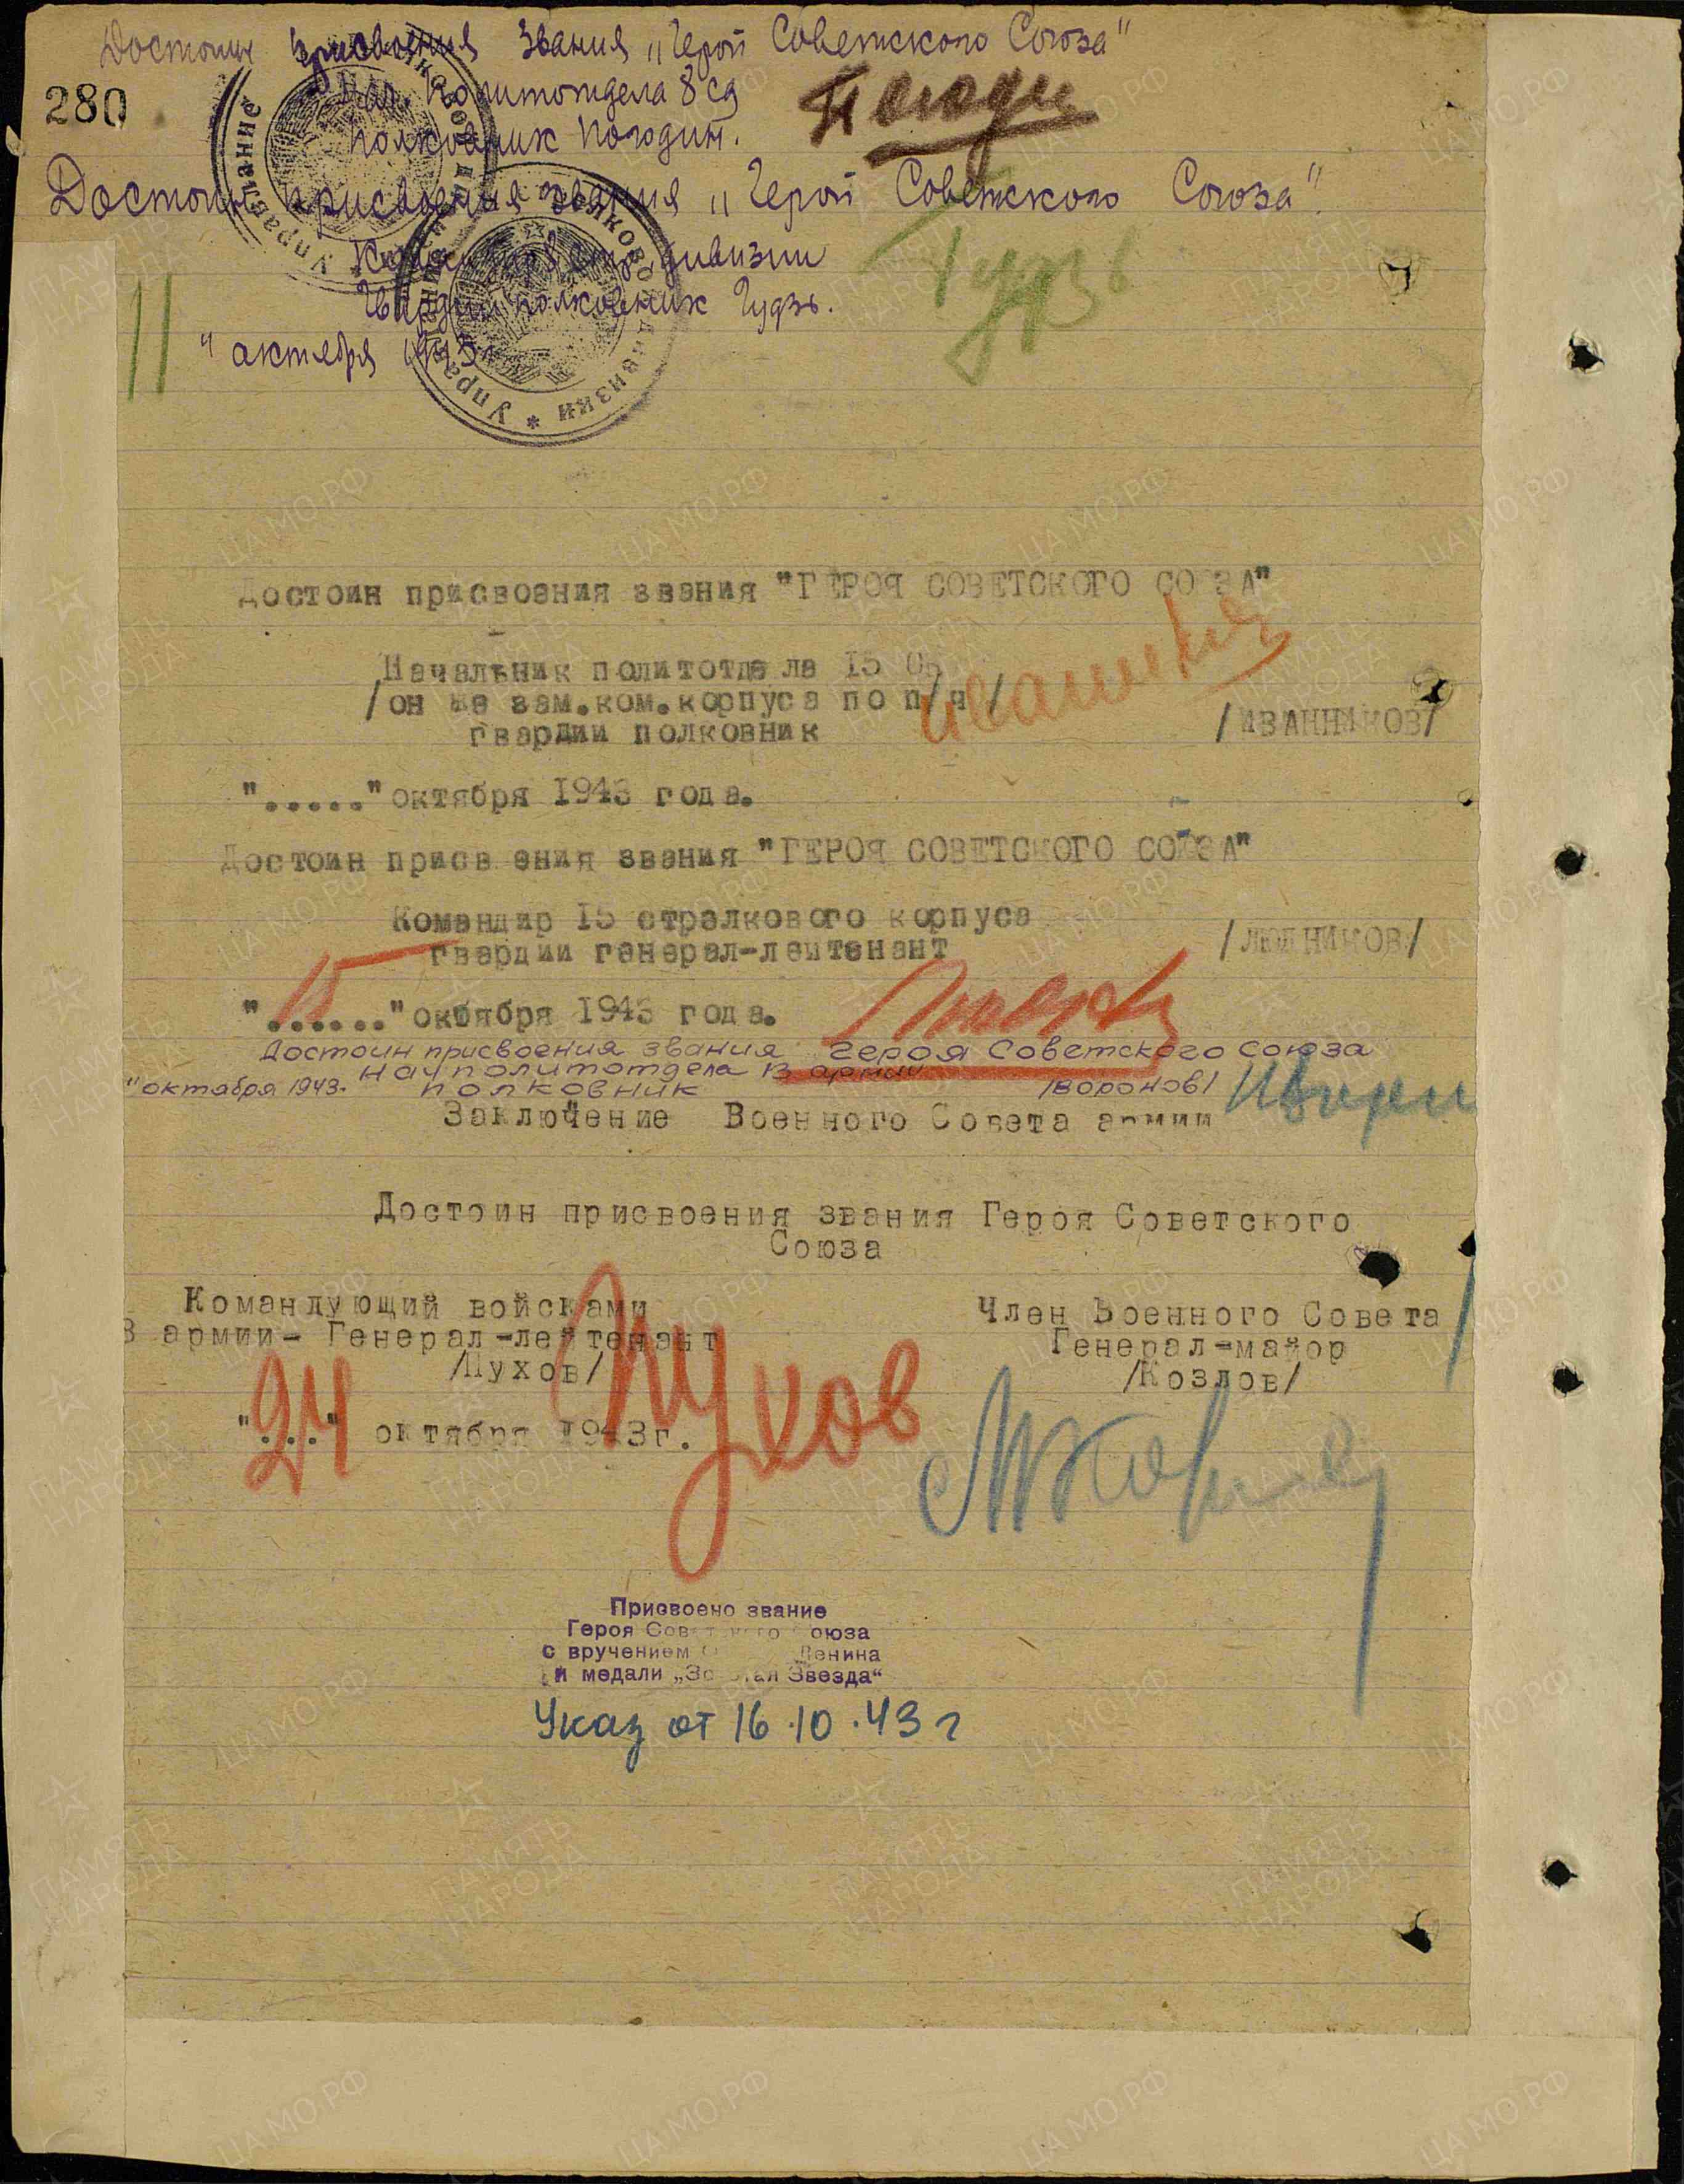 Достоин присвоения звания „Герой Советского Союза"
280
Нач. Политотдела 8 сд
Полковник Погодин.
Достоин присвоения звания „Герой Советского Союза".
Командир стр. дивизии
Гвардии полковник Гудзь.
Гудзь
11
" октября 1943 г.
Управление
Достоин присвоения звания "ГЕРОЯ СОВЕТСКОГО СО ЗА"
Начальник политотдела 15
/он же зам.ком.корпуса по п/ч/
гвардии полковник
/ИВАННИКОВ/
"....." октября 1943 года.
Достоин присв ения звания "ГЕРОЯ СОВЕТСКОГО СОЮЗА"
Командир 15 стрелкового корпуса
гвардии генерал-лейтенант
/ЛЮДНИКОВ/
15
"......" октября 1943 года.
Достоин присвоения звания Героя Советского Союза
Начполитотдела 13 армии
"октября 1943. полковник /Воронов/
Заключение Военного Совета армии
Достоин присвоения звания Героя Советского
Союза
Командующий войсками
3 армии- Генерал-лейтенант
/Пухов/
Пухов
Член Военного Совета
Генерал-майор
/Козлов/
24
"..." октября 1943г.
Присвоено звание
Героя Сов т к го оюза
с вручением Ленина
и медали „Зо тая Звезда"
Указ от 16.10.43 г